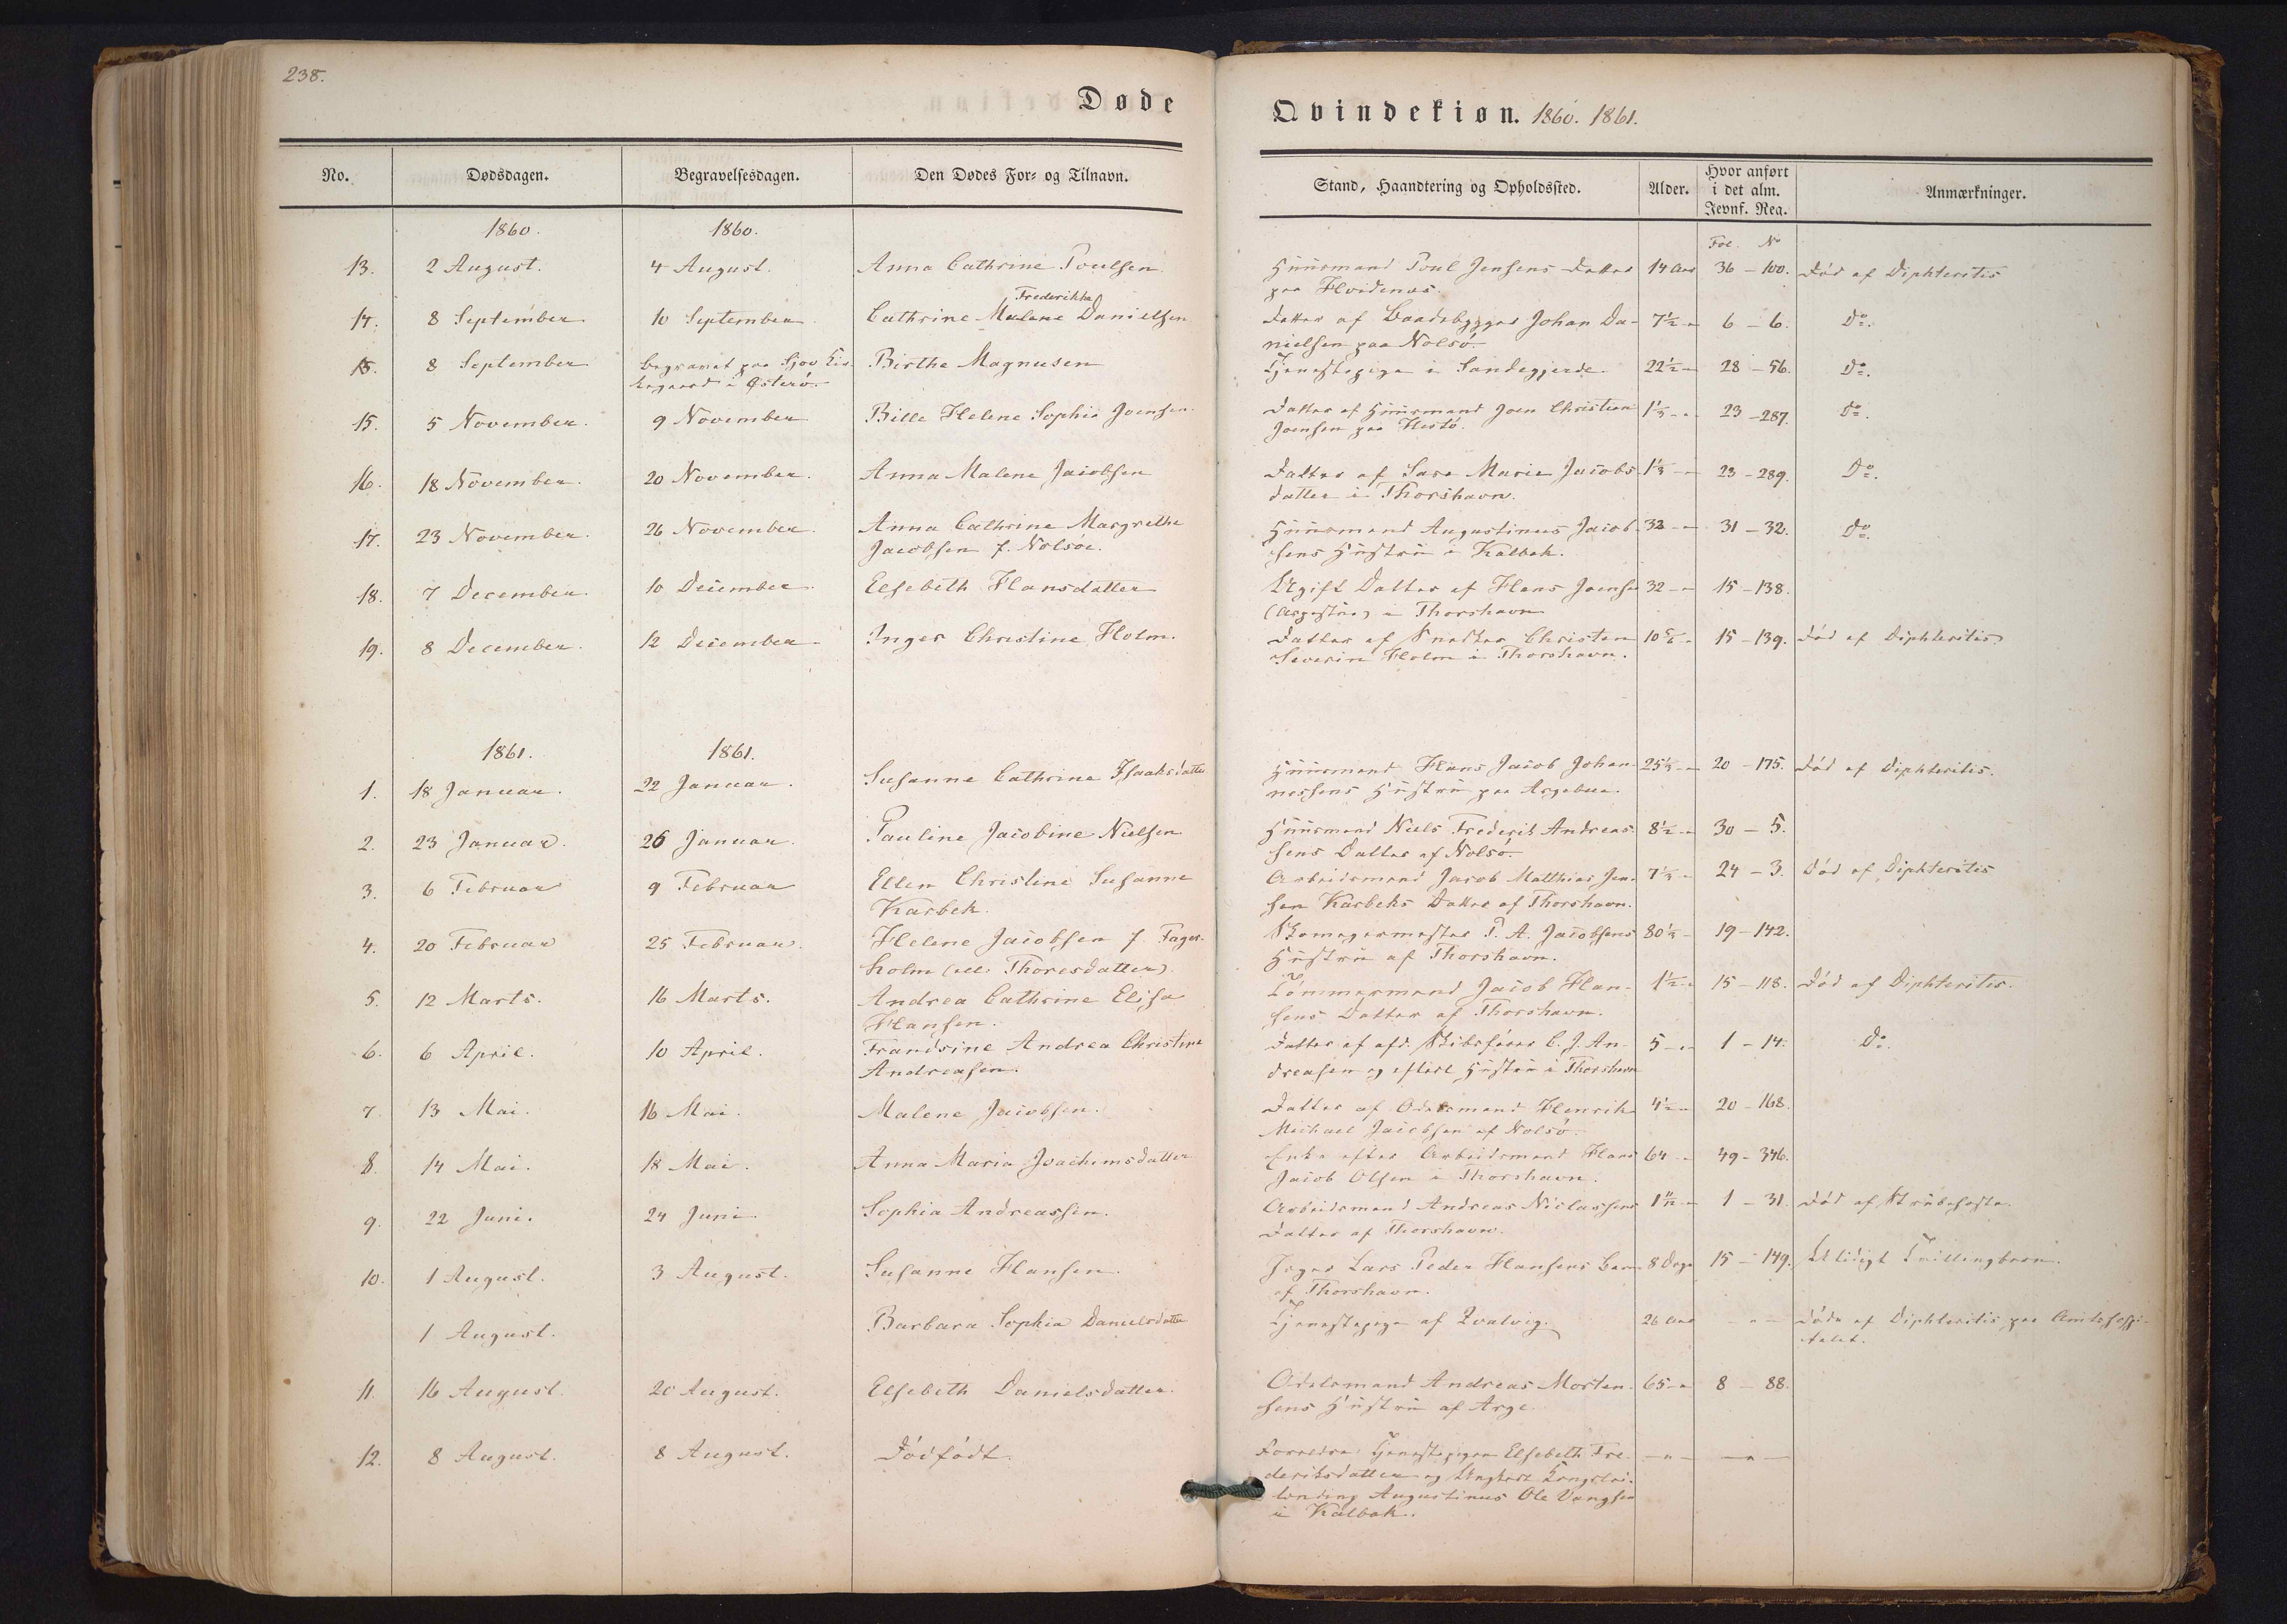 238.
Døde
Qvindekiøn. 1860. 1861.
No.
Dødsdagen.
Begravelsesdagen.
Den Dødes For= og Tilnavn.
Stand, Haandtering og Opholdssted.
Alder.
Hvor anført
i det alm.
Jevnf. Reg.
Anmærkninger.
1860. 1860.
Fol. No
13. 2 August. 4 August. Anna Cathrine Poulsen Huusmand Poul Jensens Datter 14 Aar 36 - 100. Død af Diphteritis
paa Hvidenæs.
Frederikke
14. 8 September 10 September Cathrine Malene Danielsen Datter af Baadebygger Johan Da- 7½ - " 6 - 6. Do.
nielsen paa Nolsö.
15. 8 September Begravet paa Sjov Kir- Birthe Magnusen Tjenestepige i Sandegjerde. 22½ - " 28 - 56. Do.
kegaard i Østerö.
15. 5 November. 9 November Bille Helene Sophie Joensen Datter af Huusmand Joen Christian 1⅓ - " 23 - 287. Do.
Joensen paa Hestö.
16. 18 November. 20 November. Anna Malene Jacobsen Datter af Sara Marie Jacobs- 1⅓ - " 23 - 289. Do.
datter i Thorshavn.
17. 23 November. 26 November. Anna Cathrine Margrethe Huusmand Augustinus Jacob- 32 - " 31 - 32. Do.
Jacobsen f. Nolsöe. sens Hustru i Kalbak.
18. 7 December. 10 December Elsebeth Hansdatter Ugift Datter af Hans Joensen 32 - " 15 - 138.
i Thorshavn
19. 8 December. 12 December Inger Christine Holm. Datter af Snedker Christen 10 5/6 - " 15 - 139. Død af Diphteritis
Severin Holm i Thorshavn.
1861. 1861.
1. 18 Januar. 22 Januar. Susanne Cathrine Isaaksdatter Huusmand Hans Jacob Johan- 25⅓ - " 20 - 175. Død af Diphteritis.
nessens Hustru paa Argeboe.
2. 23 Januar. 26 Januar. Pauline Jacobine Nielsen Huusmand Niels Frederik Andreas- 8½ - " 30 - 5.
sens Datter af Nolsö.
3. 6 Februar 9 Februar Ellen Christine Susanne Arbeidsmand Jacob Matthias Jen- 7⅓ - 24 - 3. Død af Diphteritis
Karbek. sen Karbeks Datter af Thorshavn.
4. 20 Februar 25 Februar. Helene Jacobsen f. Fager- Skomagermester P. A. Jacobsens 80⅓ - 19 - 142.
holm (ell. Thoresdatter). Hustru af Thorshavn.
5. 12 Marts. 16 Marts. Andrea Cathrine Elisa Tömmermand Jacob Han- 1½ - " 15 - 118. Død af Diphteritis.
Hansen. sens Datter af Thorshavn.
6. 6 April. 10 April. Frandsine Andrea Christine Datter af afd. Skibsförer C. J. An- 5 - " 1 - 14. Do.
Andreasen. dreasen og efterl. Hustru i Thorshavn
7. 13 Mai. 16 Mai. Malene Jacobsen. Datter af Odelsmand Henrik 4½ - 20 - 168.
Michael Jacobsen af Nolsö.
8. 14 Mai. 18 Mai. Anna Maria Joachimsdatter Enke efter Arbeidsmand Hans 64 - " 49 - 346.
Jacob Olsen i Thorshavn.
9. 22 Juni. 24 Juni. Sophia Andreassen. Arbeidsmand Andreas Niclassens 1 11/12 - 1 - 31. Død af Strubehoste.
Datter af Thorshavn.
10. 1 August. 3 August. Susanne Hansen. Jæger Lars Peder Hansens Barn 8 Dage 15 - 149. Utidigt Tvillingbarn.
af Thorshavn.
1 August. Barbara Sophia Danielsdatter Tjenestepige af Qvalvig. 26 Aar - " - Døde af Diphteritis paa Amtshospi-
talet.
11. 16 August. 20 August. Elsebeth Danielsdatter. Odelsmand Andreas Morten- 65 - " 8 - 88.
sens Hustru af Arge.
12. 8 August. 8 August. Dödfödt. Forældre: Tjenestepigen Elsebeth Fre- - " - - " -
deriksdatter og Ungkarl Kongslei-
lænding Augustinus Ole Vangsen
i Kalbak.